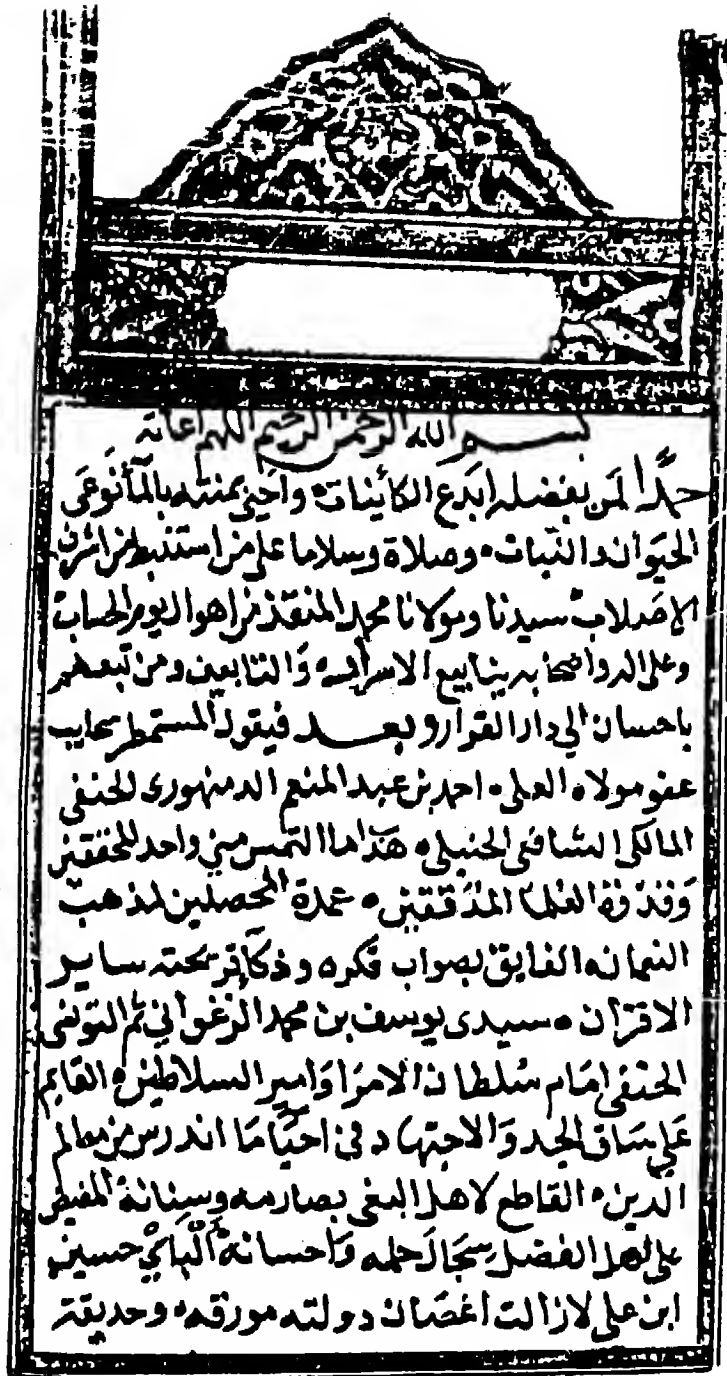 بسم الله الرحمن الرحيم اللهم اعانة
حمدا لمن بفضله ابدع الكائنات واحيى بمنته بالمأ نوعى
الحيوان والنبات وصلاة وسلاما على من استنبط من اشرف
الاصلاب سيدنا ومولانا محمد المنقذ من اهوال يوم الحساب
وعلى اله واصحابه ينابيع الاسرار والتابعين ومن تبعهم
باحسان الى دار القرار وبعد فيقول المستمطر سحايب
عفو مولاه العلى احمد بن عبد المنعم الدمنهورى الحنفى
المالكى الشافعى الحنبلى هذا ما التمس منى واحد المحققين
وقدوة العلما المدققين عمدة المحصلين لمذهب
النعمان الفايق بصواب فكره وذكآ قريحته ساير
الاقران سيدى يوسف بن محمد الزغوانى ثم التونسى
الحنفى امام سلطان الامرا وامير السلاطين القايم
على ساق الجد والاجتهاد فى احيا ما اندرس من معالم
الدين القاطع لاهل البغى بصارمه وسنانه المفيض
على اهل الفضل سجال حلمه واحسانه الباى حسين
ابن على لازالت اغصان دولته مورقه وحديقة